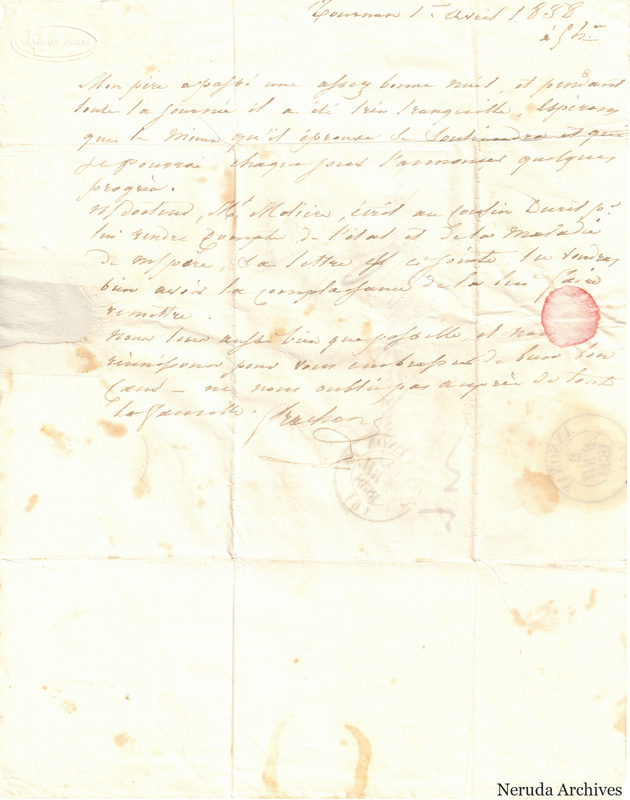 Tournon 1er Avril 1838
à 5 h.
Mon père a passé une assez bonne nuit, et pendant
toute la journée il a été très tranquille, esperons
que le mieux qu'il éprouve se soutiendra et que
je pourrai chaque jour t'annoncer quelques
progrès.
docteur, Mr. Molière, écrit au cousin Duret pr.
lui rendre compte de l'état et de la maladie
de père, sa lettre est ci jointe tu voudras
bien avoir la complaisance de la lui faire
remettre.
Nous tous aussi bien que possible, et nous
réunissons pour vous embrasser de bien bon
Cœur - ne nous oublie pas auprès de toute
la famille.
Neruda Archives